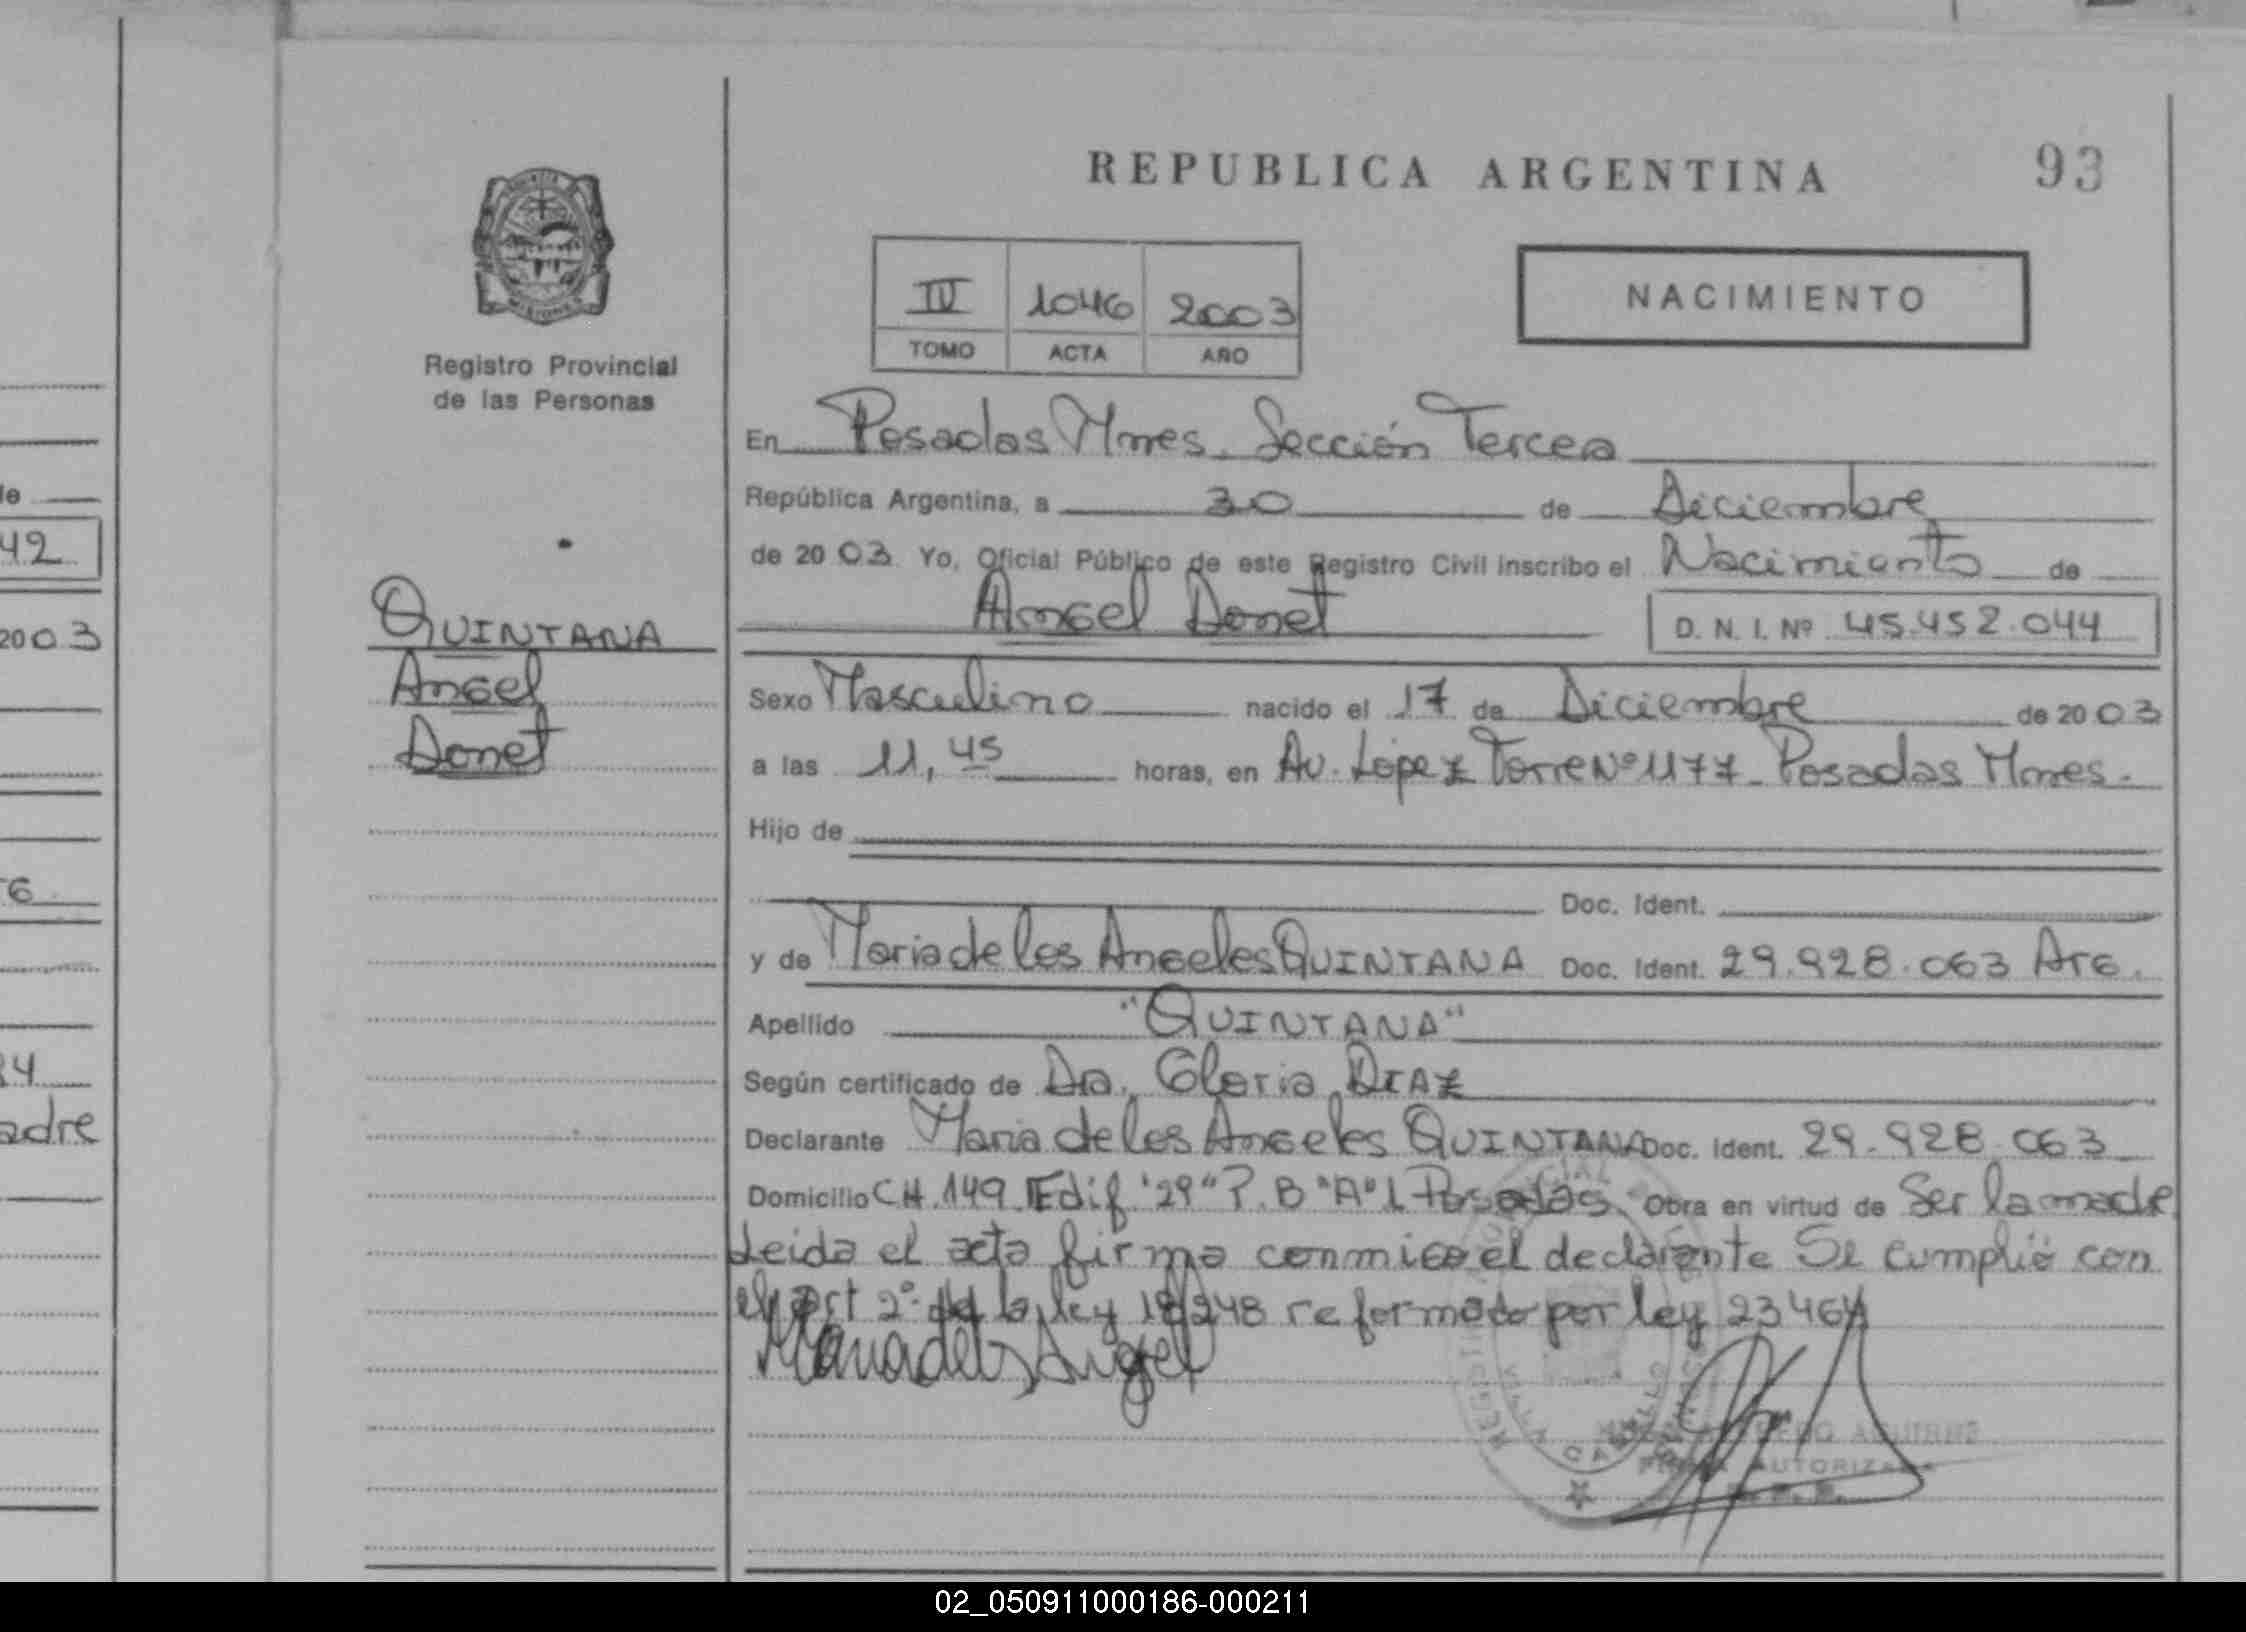 REPUBLICA ARGENTINA
93
IV 1046 2003
TOMO ACTA AÑO
NACIMIENTO
Registro Provincial
de las Personas
MISIONES
En Posadas Mnes. Sección Tercera
República Argentina, a 30 de Diciembre
de 2003 Yo, Oficial Público de este Registro Civil inscribo el Nacimiento de
Angel Donet
D. N. I. Nº 45.452.044
QUINTANA
Angel
Donet
Sexo Masculino nacido el 17 de Diciembre de 2003
a las 11,45 horas, en Av. López Torre Nº 1177 Posadas Mnes.
Hijo de
Doc. Ident.
y de Maria de los Angeles QUINTANA Doc. Ident. 29.928.063 Arg.
Apellido "QUINTANA"
Según certificado de Dra. Gloria DIAZ
Declarante Maria de los Angeles QUINTANA Doc. Ident. 29.928.063
Domicilio CH.149 Edif "29" P.B "A" 1 Posadas. Obra en virtud de Ser la madre
Leida el acta firma conmigo el declarante Se cumplió con
el art 2º de la ley 18248 reformado por ley 23464
VILLA CABELLO
AGUIRRE
FIRMA AUTORIZADA
le
42
2003
6
84
adre
02_050911000186-000211